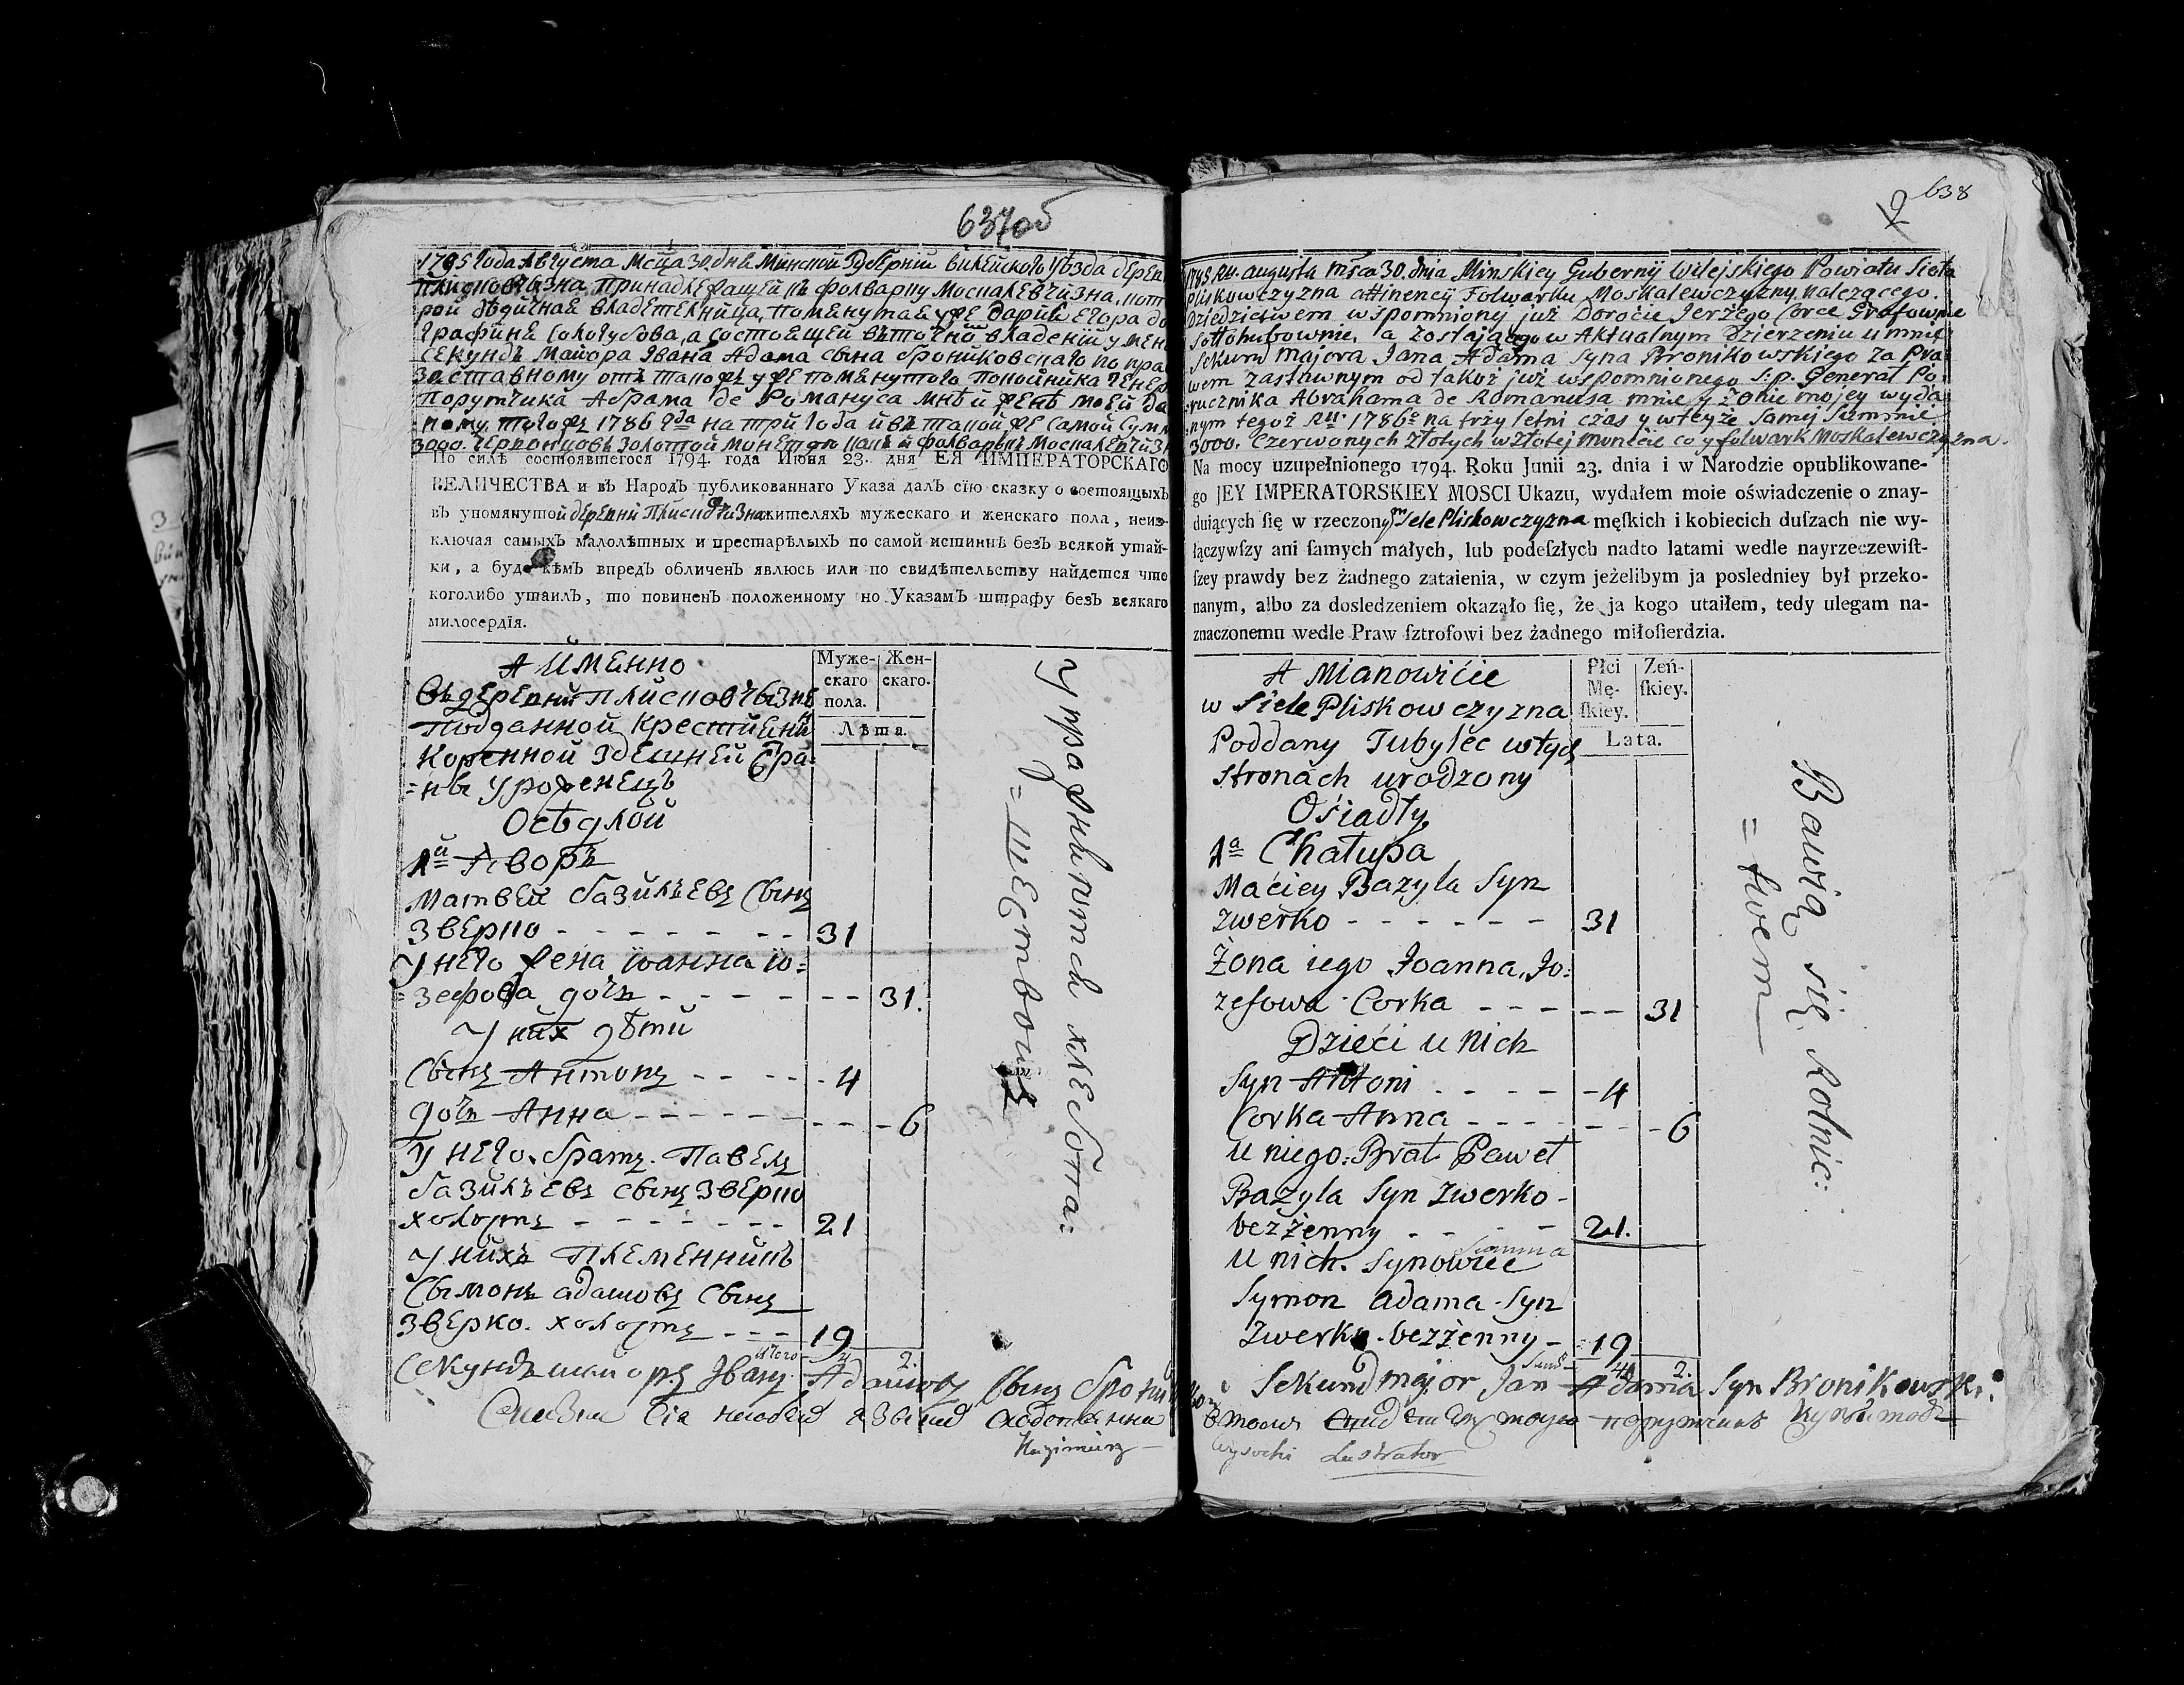 637об
1795 года Августа мсца 30. дня Минской Губерний Вилейского уѣзда дерев
Плисковчызна Принадлежащей къ фолварку Москалевчизна, кот
рой дѣдичная владетелница, поменутая уже Дария Егора до
Графиня Сологубова, а состоящей въ точно владений у мен
Секундъ Майора Ивана Адама сына Брониковскаго по пра
заставному отъ такожъ уже поменутого Покойника Генер
Порутчика Абрама de Романуса мнѣ и женѣ моей да
ному тогожъ 1786 года на три года и въ такой же самой сумм
3000. Червонцовъ золотой монетою какъ и фолваркъ Москалевчизн
По силѣ состоявшегося 1794. года Июня 23. дня ЕЯ ИМПЕРАТОРСКАГО
ВЕЛИЧЕСТВА и въ Народъ публикованнаго Указа далъ сїю сказку о состоящыхъ
въ упомянутой деревни Плисковчизна жителяхъ мужескаго и женскаго пола, неиз-
ключая самыхъ малолѣтныхъ и престарѣлыхъ по самой истиннѣ безъ всякой утай-
ки, а буде кѣмъ впредъ обличенъ явлюсь или по свидѣтельству найдется что
коголибо утаилъ, то повиненъ положенному по Указамъ штрафу безъ всякаго
милосердїя.
А Именно
Муже-
скаго
пола.
Жен-
скаго.
Лѣта.
Въ деревни Плисковчызне
Подданной крестиенин
Коренной здешней Стра
=ны Уроженецъ
Осѣдлой
1й Дворъ
Матвей Базилъевъ Сынъ
Зверко - - - - - - - 31
У него жена Иоанна Ио=
=зефова дочь - - - - - - - 31.
У них дѣти
Сынъ Антонъ - - - - - 4
дочь Анна - - - - - - - - 6
У него. братъ. Павелъ
Базилъевъ сынъ Зверко
холостъ - - - - - - - 21
У нихъ Племенникъ
Сымонъ адамовъ Сынъ
Зверко. холостъ - - - 19
итого 4 2.
Упражняются хлебопа=
=шествомъ
Секундъ маиоръ Иванъ Адамовъ Сынъ Брони
Kazimierz
638
1795 Ru. augusta mśca 30. dnia Minskiey Gubernij Wilejskiego Powiatu Sioła
Pliskowczyzna attinencij Folwarku Moskalewczyzny. należącego.
Dziedzictwem wspomnioney już Dorocie Jerzego Corce Grafownie
Sołłohubownie, a zostającego w Aktualnym Dzierżeniu u mnie
Sekund majora Jana Adama Syna Bronikowskiego za Pra
wem zastawnym od także już wspomnionego s:p. Generał Po
rucznika Abrahama de Romanusa mnie y żonie mojey wyda
nym tegoż Ru. 1786o na trzy letni czas y w teyże samey summie
3000. Czerwonych złotych w złotej monecie co y folwark Moskalewczyzna.
Na mocy uzupełnionego 1794. Roku Junii 23. dnia i w Narodzie opublikowane-
go JEY IMPERATORSKIEY MOSCI Ukazu, wydałem moie oświadczenie o znay-
duiących ſię w rzeczonym Siele Pliskowczyzna męſkich i kobiecich duſzach nie wy-
łączywſzy ani ſamych małych, lub podeſzłych nadto latami wedle nayrzeczewiſt-
ſzey prawdy bez żadnego zataienia, w czym jeżelibym ja posledniey był przeko-
nanym, albo za dosledzeniem okazało ſię, że ja kogo utaiłem, tedy ulegam na-
znaczonemu wedle Praw ſztrofowi bez żadnego miłoſierdzia.
A Mianowićie
Płci
Mę-
ſkiey.
Zeń-
ſkiey.
Lata.
w Siele Pliskowczyzna
Poddany Tubylec w tych
stronach urodzony
Ośiadły
1a Chałupa
Maćiey Bazyla Syn
Zwerko - - - - - - 31
Żona iego Joanna, Jo:
zefowa Corka - - - - - 31
Dzieći u nich
Syn Antoni - - - - - 4
Corka Anna - - - - - - - 6
u niego: Brat Paweł
Bazyla Syn Zwerko -
bezżenny - - - 21.
u nich. Synowiec
Symon Adama Syn
Zwerko. bezżenny - 19
Summa 4 2.
Bawią się Rolnic:
= twem
Sekund major Jan Adama Syn Bronikowski:
Wysocki Lustrator